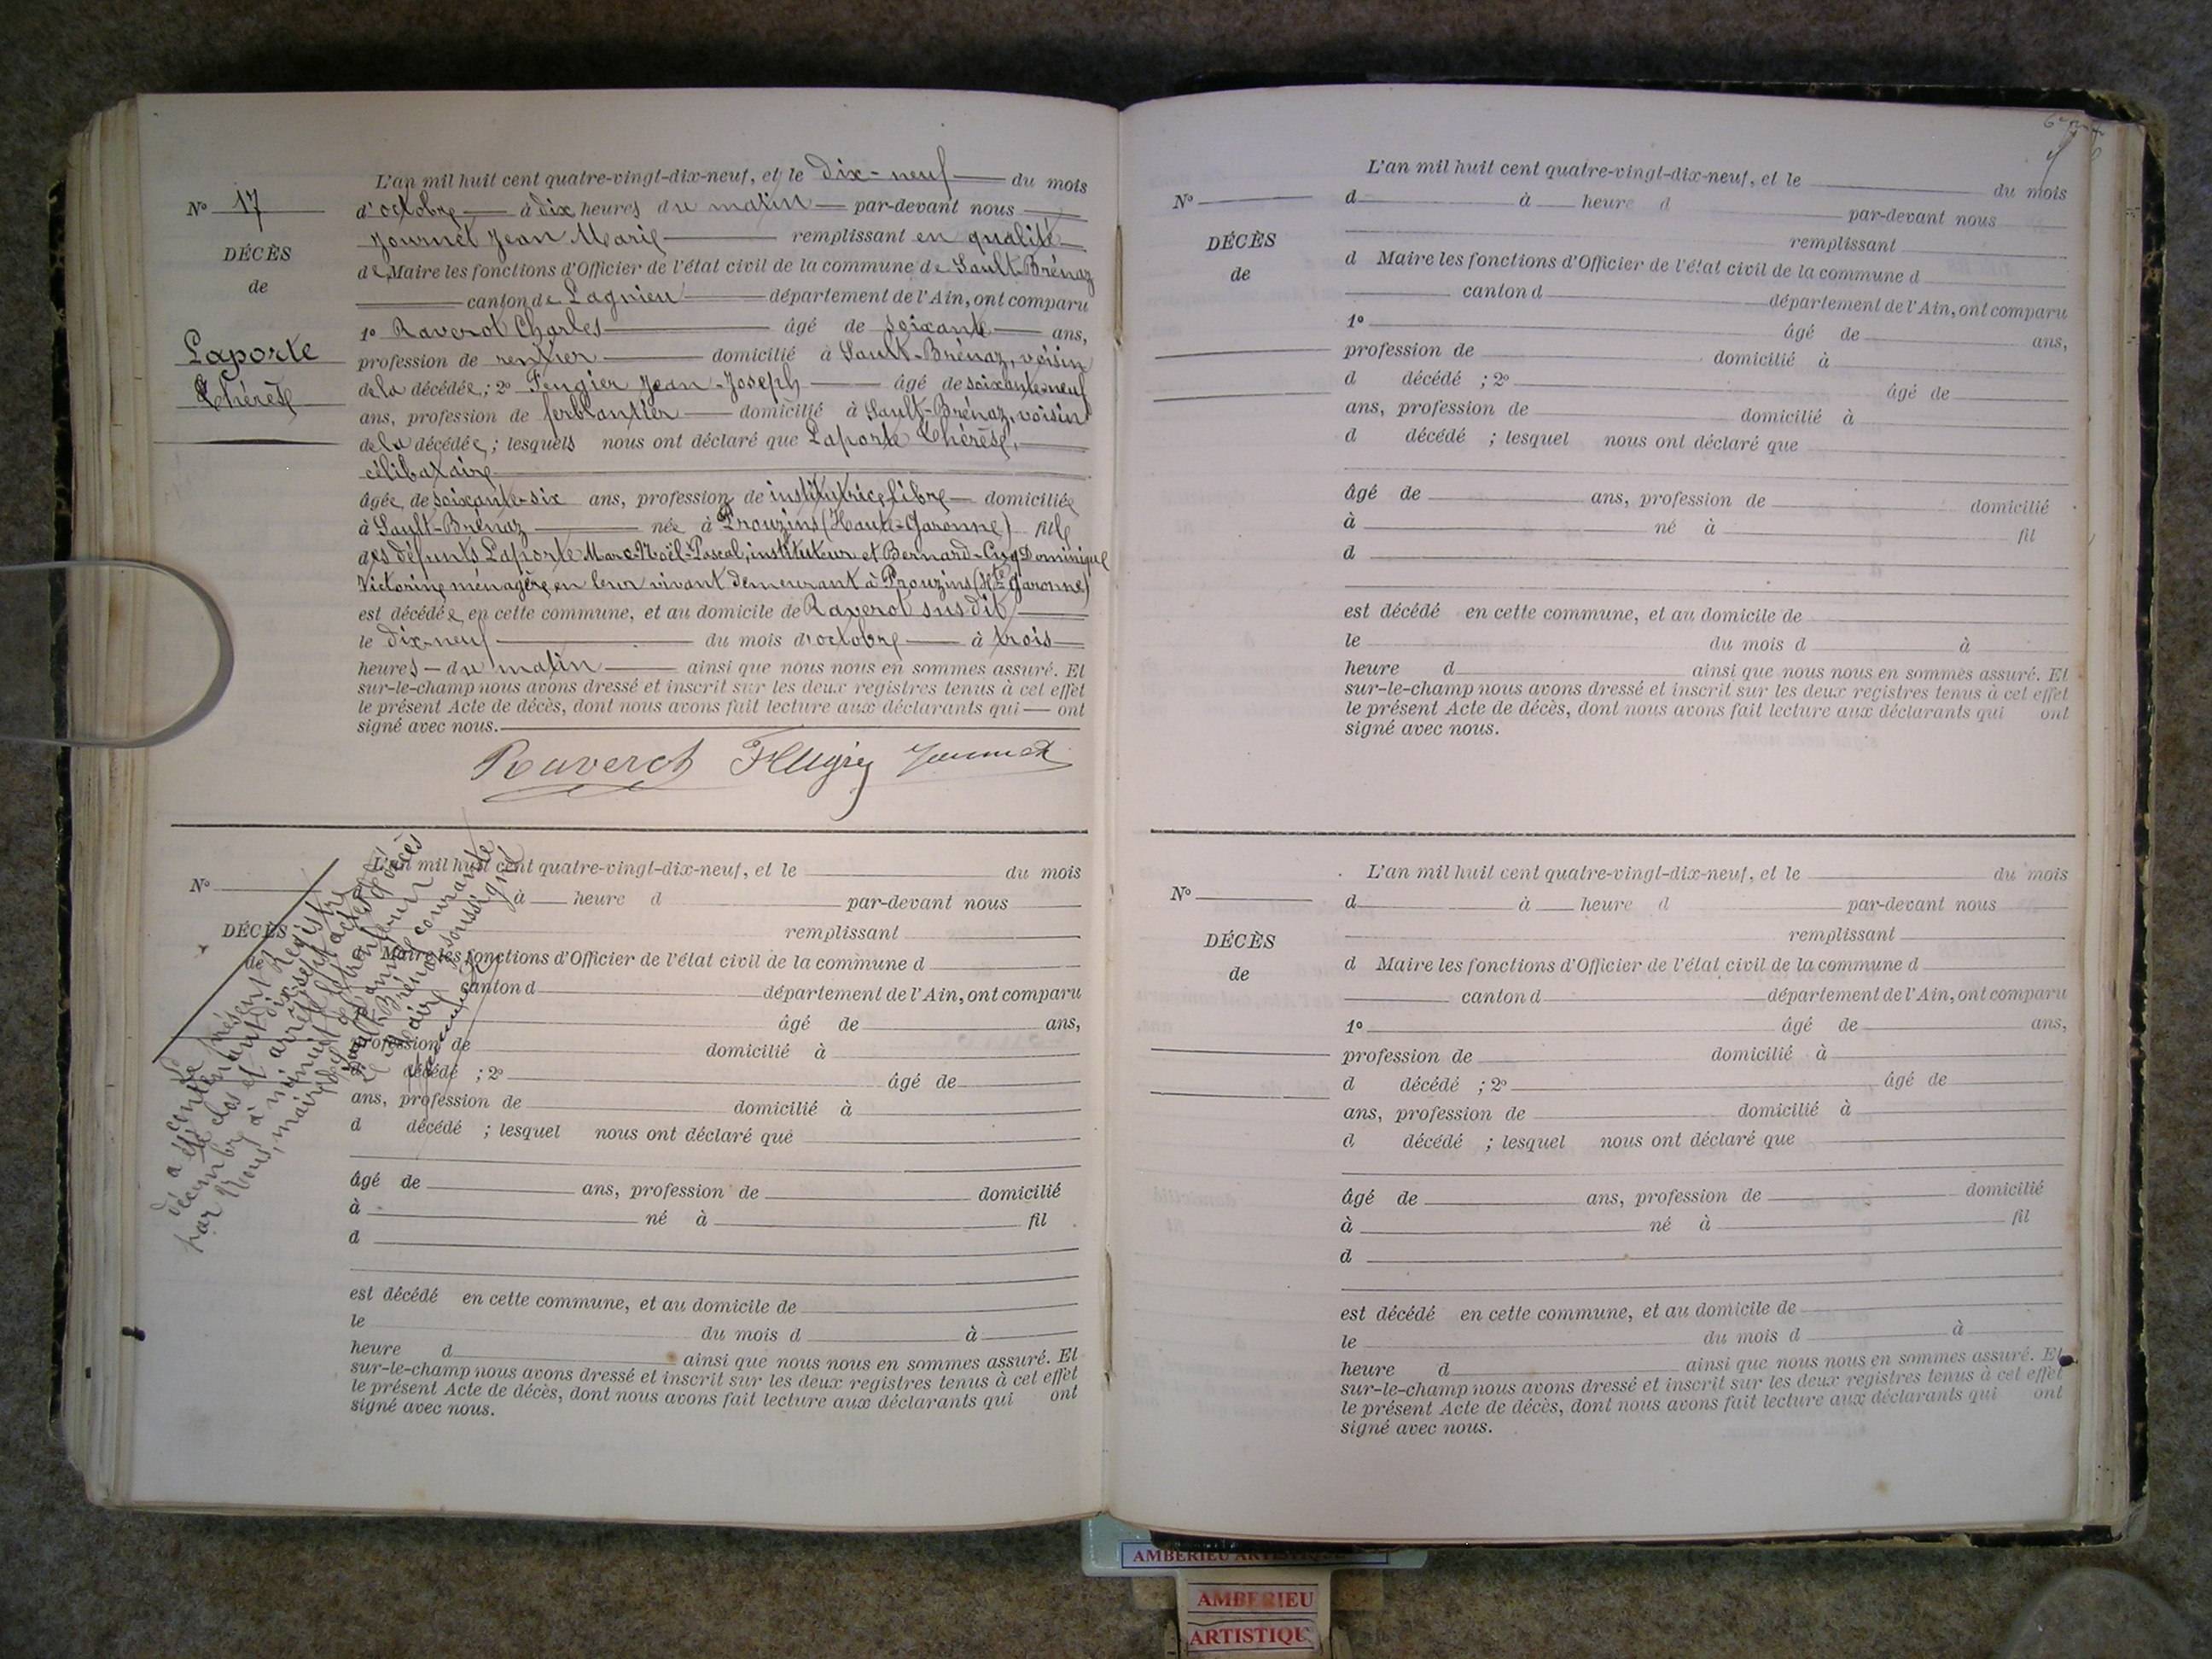 N° 17
DÉCÈS
de
Laporte
Thérèse
L'an mil huit cent quatre-vingt-dix-neuf, et le dix-neuf du mois
d'octobre à dix heures du matin par-devant nous
Journet Jean Marie remplissant en qualité
de Maire les fonctions d'Officier de l'état civil de la commune de Sault-Brénaz
canton de Lagnieu département de l'Ain, ont comparu
1° Raverot Charles âgé de soixante ans,
profession de rentier domicilié à Sault-Brénaz, voisin
de la décédée ; 2° Feugier Jean-Joseph âgé de soixante-neuf
ans, profession de ferblantier domicilié à Sault-Brénaz, voisin
de la décédée ; lesquels nous ont déclaré que Laporte Thérèse,
célibataire
âgée de soixante-six ans, profession de institutrice libre domiciliée
à Sault-Brénaz née à Prouzins (Haute-Garonne) fille
des défunts Laporte Marc-Noël-Pascal, instituteur et Bernard-Cuq Dominique
Victorine ménagère en leur vivant demeurant à Prouzins (Hte Garonne)
est décédée en cette commune, et au domicile de Raverot susdit
le dix-neuf du mois d'octobre à trois
heures du matin ainsi que nous nous en sommes assuré. Et
sur-le-champ nous avons dressé et inscrit sur les deux registres tenus à cet effet
le présent Acte de décès, dont nous avons fait lecture aux déclarants qui ont
signé avec nous.
Raverot Journet
N°
DÉCÈS
de
Le présent Registre
contenant dix-sept actes de décès
a été clos et arrêté le trente un
décembre à minuit de l'année courante
par Nous, maire de Sault-Brénaz soussigné
Le Maire
Journet
L'an mil huit cent quatre-vingt-dix-neuf, et le du mois
à heure d par-devant nous
remplissant
Maire les fonctions d'Officier de l'état civil de la commune d
canton d département de l'Ain, ont comparu
âgé de ans,
profession de domicilié à
décédé ; 2° âgé de
ans, profession de domicilié à
d décédé ; lesquel nous ont déclaré que
âgé de ans, profession de domicilié
à né à fil
d
est décédé en cette commune, et au domicile de
le du mois d à
heure d ainsi que nous nous en sommes assuré. Et
sur-le-champ nous avons dressé et inscrit sur les deux registres tenus à cet effet
le présent Acte de décès, dont nous avons fait lecture aux déclarants qui ont
signé avec nous.
N°
DÉCÈS
de
L'an mil huit cent quatre-vingt-dix-neuf, et le du mois
d à heure d par-devant nous
remplissant
d Maire les fonctions d'Officier de l'état civil de la commune d
canton d département de l'Ain, ont comparu
1° âgé de ans,
profession de domicilié à
d décédé ; 2° âgé de
ans, profession de domicilié à
d décédé ; lesquel nous ont déclaré que
âgé de ans, profession de domicilié
à né à fil
d
est décédé en cette commune, et au domicile de
le du mois d à
heure d ainsi que nous nous en sommes assuré. Et
sur-le-champ nous avons dressé et inscrit sur les deux registres tenus à cet effet
le présent Acte de décès, dont nous avons fait lecture aux déclarants qui ont
signé avec nous.
N°
DÉCÈS
de
L'an mil huit cent quatre-vingt-dix-neuf, et le du mois
d à heure d par-devant nous
remplissant
d Maire les fonctions d'Officier de l'état civil de la commune d
canton d département de l'Ain, ont comparu
1° âgé de ans,
profession de domicilié à
d décédé ; 2° âgé de
ans, profession de domicilié à
d décédé ; lesquel nous ont déclaré que
âgé de ans, profession de domicilié
à né à fil
d
est décédé en cette commune, et au domicile de
le du mois d à
heure d ainsi que nous nous en sommes assuré. Et
sur-le-champ nous avons dressé et inscrit sur les deux registres tenus à cet effet
le présent Acte de décès, dont nous avons fait lecture aux déclarants qui ont
signé avec nous.
AMBERIEU ARTISTIQUE
AMBERIEU
ARTISTIQU